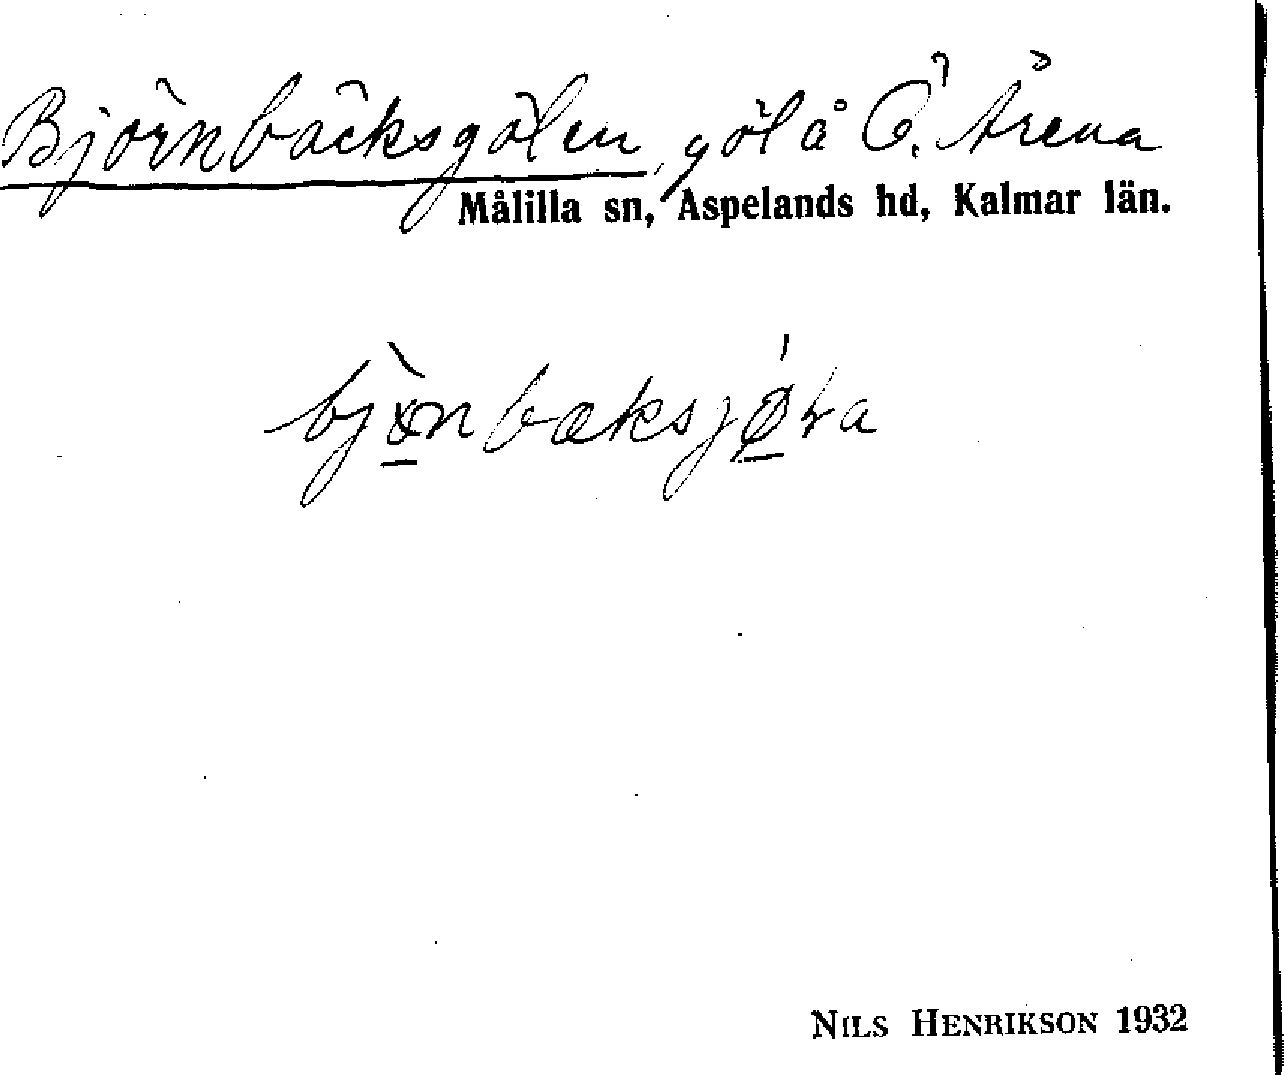 Björnbäcksgölen, göl å Ö. Årena
Målilla sn, Aspelands hd, Kalmar län.
NILS HENRIKSON 1932